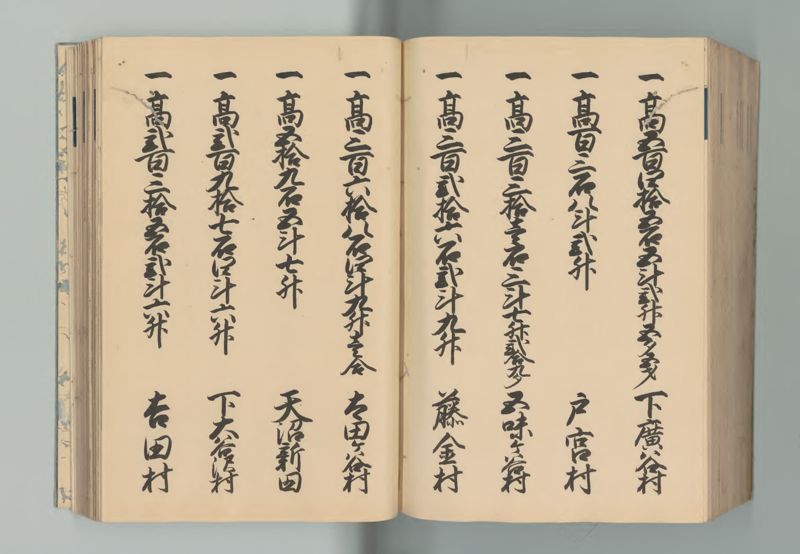 一高五百四拾五石五斗弐升五夕 下廣谷村
一高百三石八斗弐升 戸宮村
一高三百三拾壱石三斗七升弐合九夕 五味ヶ谷村
一高三百弐拾六石弐斗九升 藤金村
一高三百六拾八石四斗九升壱合 太田ヶ谷村
一高五拾九石五斗七升 天沼新田
一高弐百九拾七石四斗六升 下大谷沢村
一高弐百三拾五石弐斗六升 吉田村